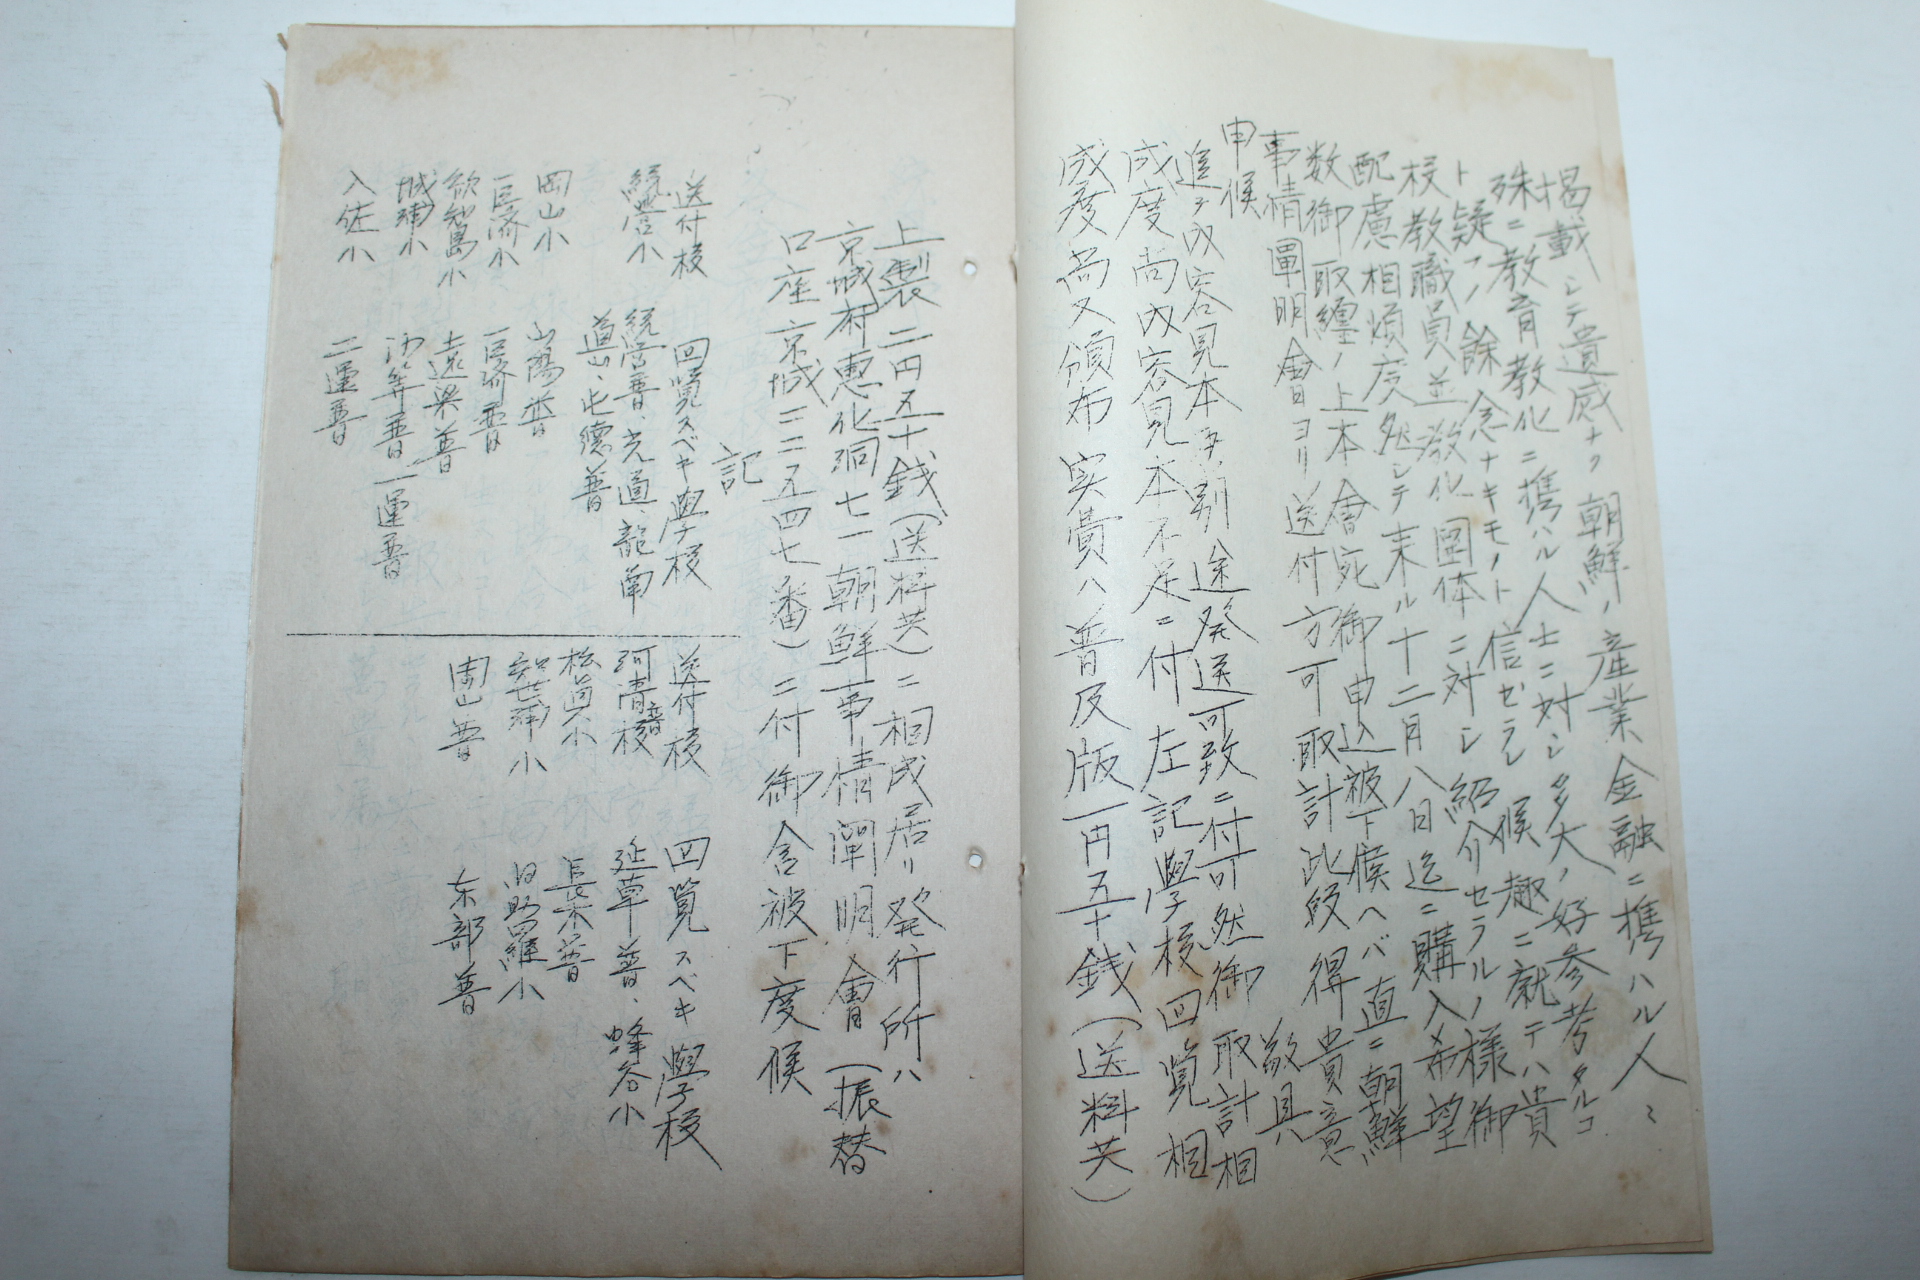 掲載シテ遺感ナク朝鮮ノ産業金融ニ携ハル人ミ
殊ニ教育教化ニ携ハル人士ニ対シ多大ノ好参考タルコ
ト疑フノ餘念ナキモノト信ゼラル候趣ニ就テハ貴
校教職員並教化團体ニ対シ紹介セラルノ様御
配慮相煩度然シテ来ル十二月八日迄ニ購入希望
数御取纏ノ上本會宛御申込被下候ヘバ直ニ朝鮮
事情闡明會ヨリ送付方可取計此段得貴意
申候 敬具
追テ内容見本ヲ別途発送可致ニ付可然御取計相
成度尚内容見本不足ニ付左記學校回覧相
成度尚又頒布実費ハ普及版一円五十銭(送料共)
上製二円五十銭(送料共)ニ相成居リ発行所ハ
京城府恵化洞七一朝鮮事情闡明會(振替
口座京城二二五四七番)ニ付御含被下度候
記
送付校 回覧スベキ學校
統営小 統営普、光道、龍南
道山、屯徳普
岡山小 山陽普
巨済小 巨済普
欲知島小 遠梁普
城浦小 沙等普 一運普
入佐小 二運普
送付校 回覧スベキ學校
河清普校 延草普、蜂谷小
松眞小 長木普
知世浦小 旧助羅小
閑山普 东部普